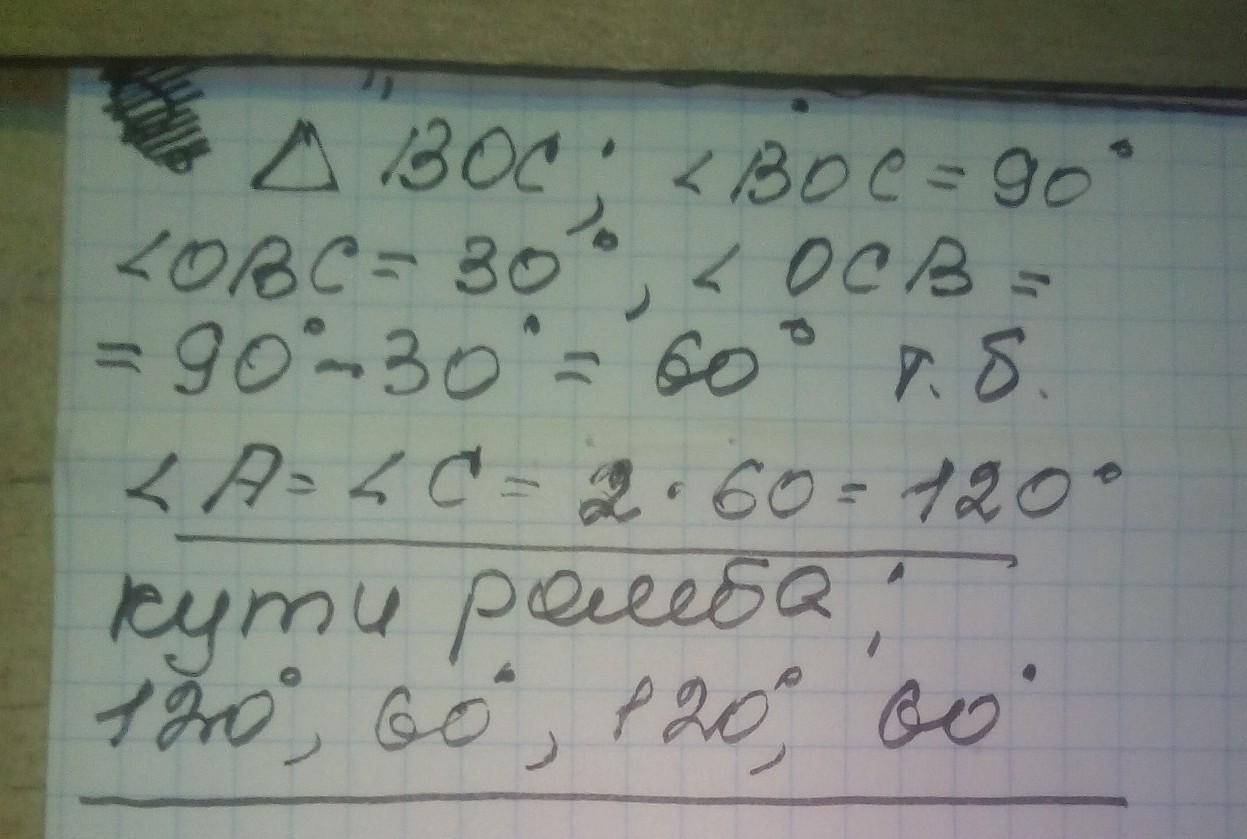 △ BOC; <BOC = 90°
<OBC = 30°, < OCB =
= 90° - 30° = 60° т. б.
< A = < C = 2 · 60 = 120°
кути ромба;
120°, 60°, 120°, 60°